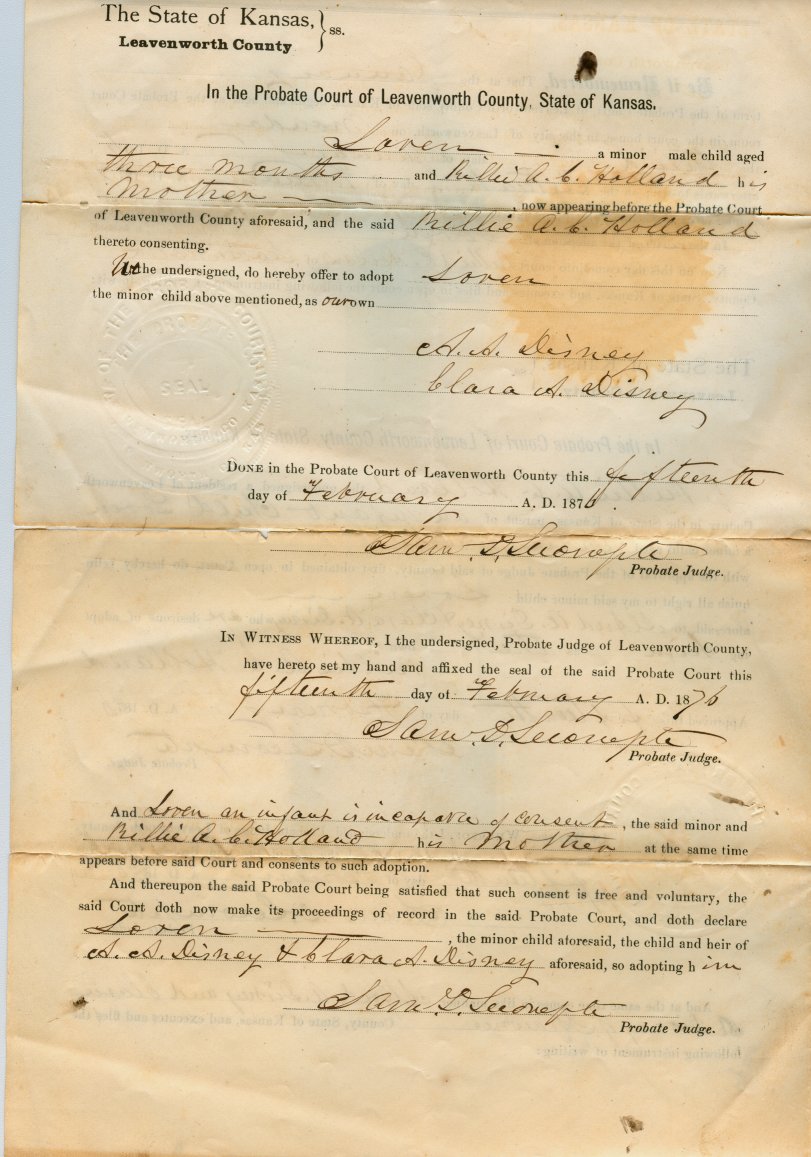 The State of Kansas, } ss.
Leavenworth County
In the Probate Court of Leavenworth County, State of Kansas.
Loren a minor male child aged
three months and Rillie A. C. Holland his
mother , now appearing before the Probate Court
of Leavenworth County aforesaid, and the said Rillie A. C. Holland
thereto consenting.
We the undersigned, do hereby offer to adopt Loren
the minor child above mentioned, as our own
A. A. Disney
Clara A. Disney
SEAL
DONE in the Probate Court of Leavenworth County this fifteenth
day of February A. D. 1876.
Sam. D. Lecompte
Probate Judge.
IN WITNESS WHEREOF, I the undersigned, Probate Judge of Leavenworth County,
have hereto set my hand and affixed the seal of the said Probate Court this
fifteenth day of February A. D. 1876
Sam. D. Lecompte
Probate Judge.
And Loren an infant is incapable of consent, the said minor and
Rillie A. C. Holland his Mother at the same time
appears before said Court and consents to such adoption.
And thereupon the said Probate Court being satisfied that such consent is free and voluntary, the
said Court doth now make its proceedings of record in the said Probate Court, and doth declare
Loren , the minor child aforesaid, the child and heir of
A. A. Disney & Clara A. Disney aforesaid, so adopting him
Sam. D. Lecompte
Probate Judge.